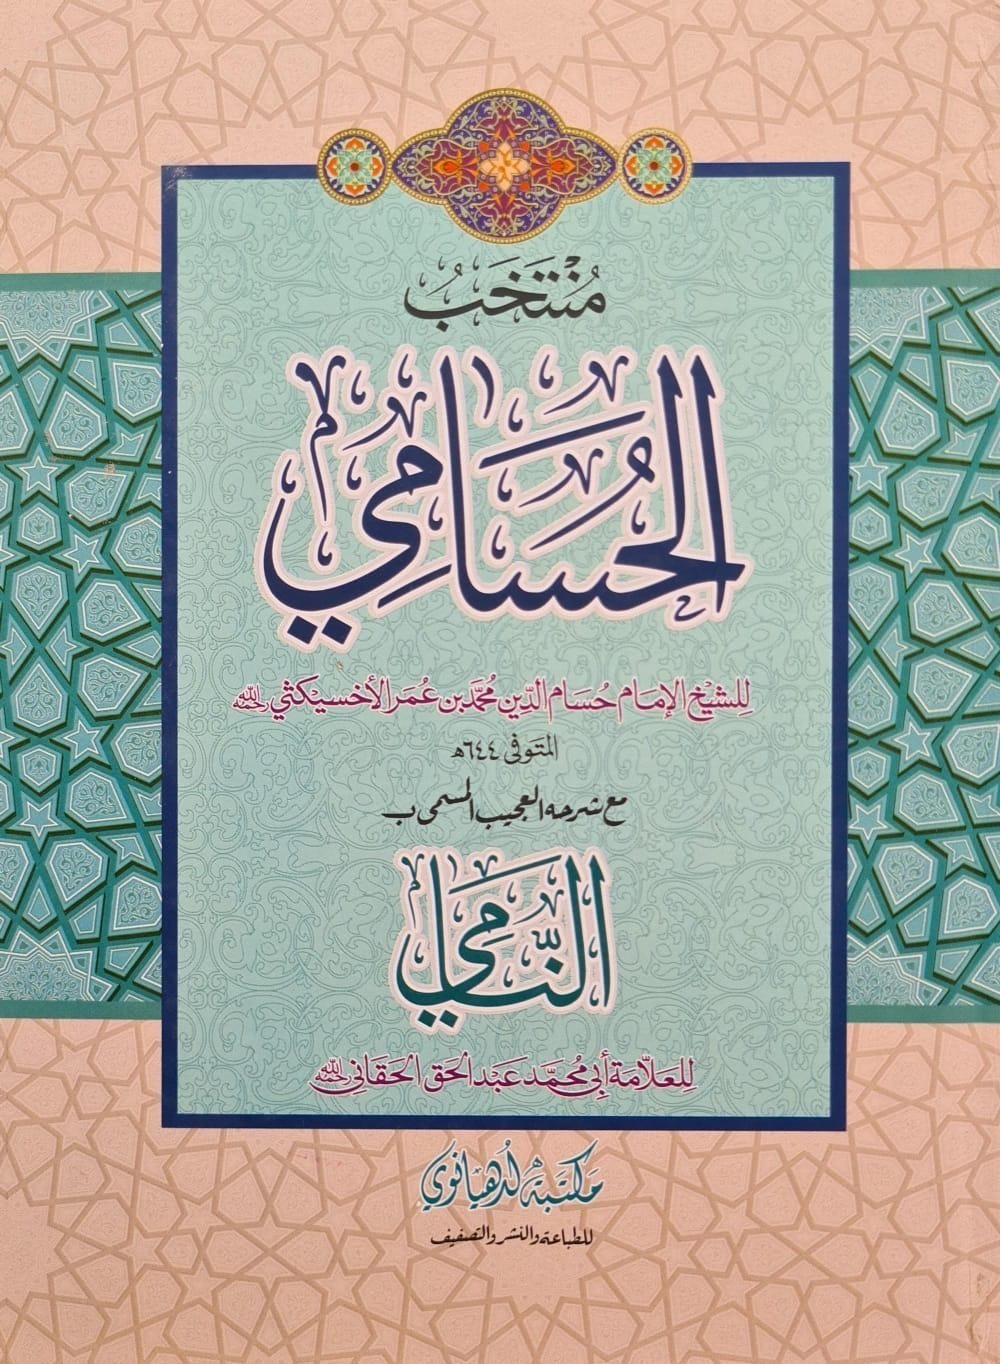 مُنْتَخَبُ
الحُسَامِي
للشيخ الإمام حسام الدين محمد بن عمر الأخسيكثي رحمه الله
المتوفى ٦٤٤ھ
مع شرحه العجيب المسمى ب
النَّامِي
للعلّامة أبي محمد عبد الحق الحقاني رحمه الله
مكتبة لدهيانوي
للطباعة والنشر والتصفيف